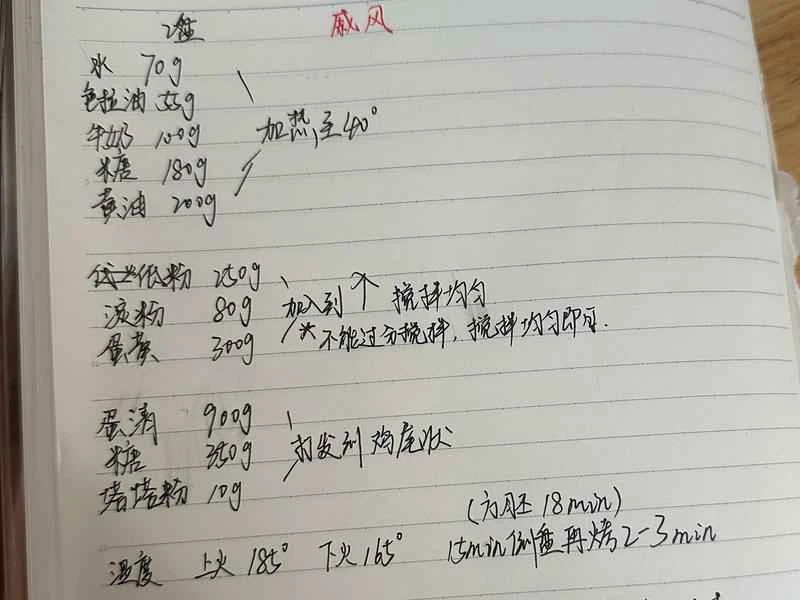 2盘 戚风
水 70g
色拉油 55g
牛奶 100g 加热至40°
糖 180g
黄油 200g
低粉 250g
淀粉 80g 加入到↑ 搅拌均匀
蛋黄 300g *不能过分搅拌，搅拌均匀即可.
蛋清 900g
糖 350g 打发到鸡尾状
塔塔粉 10g
(方胚 18min)
温度 上火 185° 下火 165° 15min倒盘再烤2-3min